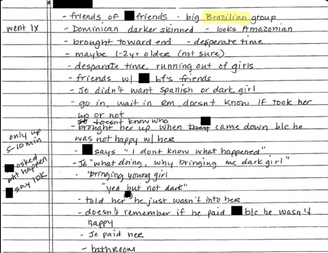 - friends of friends - big Brazilian group
went 1x
- Dominican darker skinned - looks Amazonian
- brought toward end - desperate time
- maybe 1-2yr older (not sure)
- desperate time running out of girls
- friends w/ bf's friends
- Je didn't want Spanish or dark girl
- go in, wait in RM, doesn't know if took her up or not
- brought her up when came down b/c he was not happy w/ her
only up 5-10 min
- says "I dont know what happened"
asked what happen
say idk
- Je "what doing, why bringing me dark girl"
- "bringing young girl
"yea but not dark"
- told her he just wasn't into her
- doesn't remember if he paid b/c he wasn't happy
- Je paid her
- bathroom